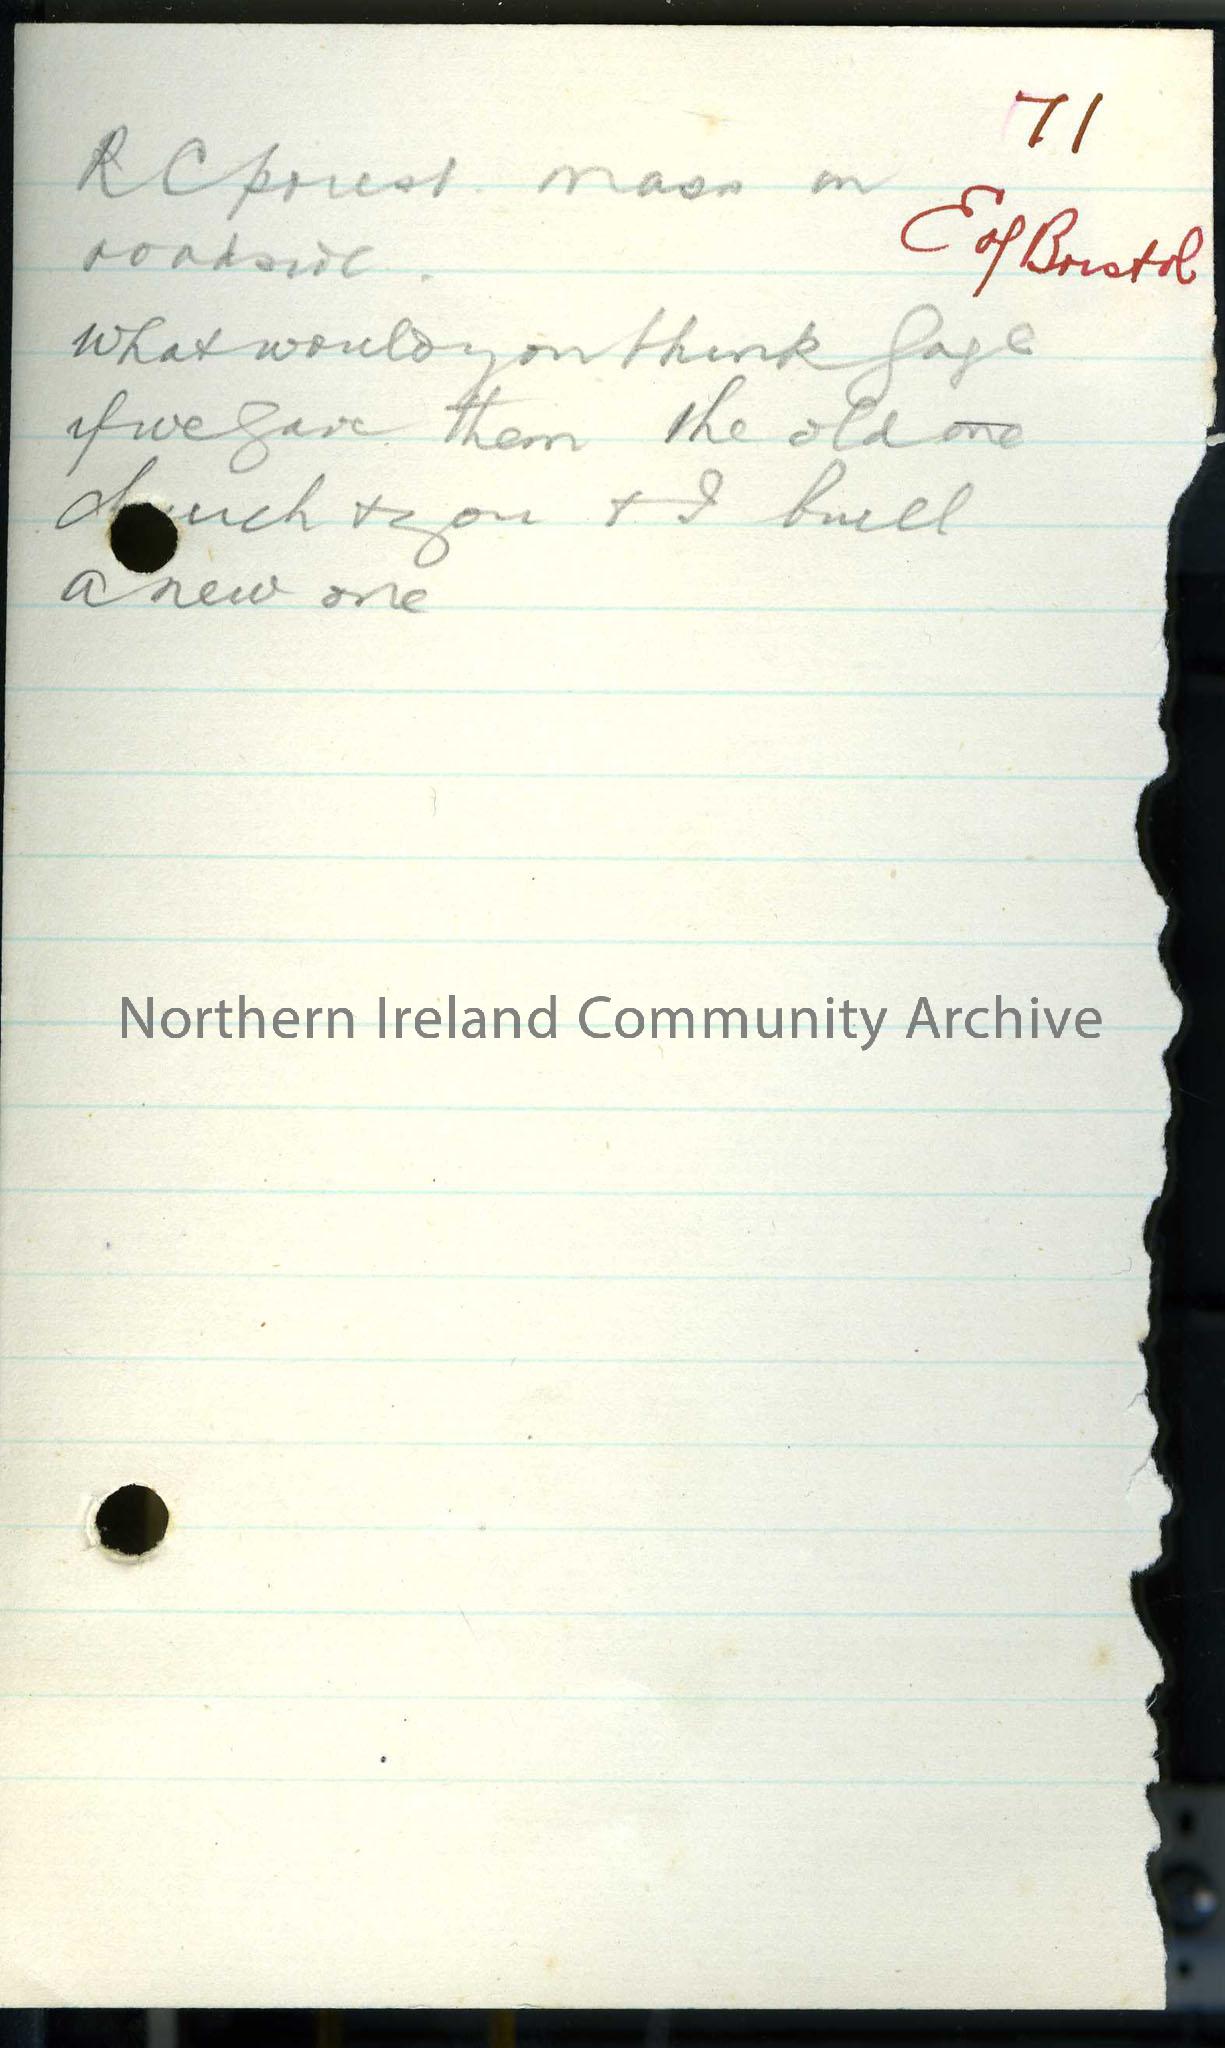 71
R C priest. mass on
roadside.
E of Bristol
what would you think Gage
if we gave them the old one
church & you & I build
a new one
Northern Ireland Community Archive